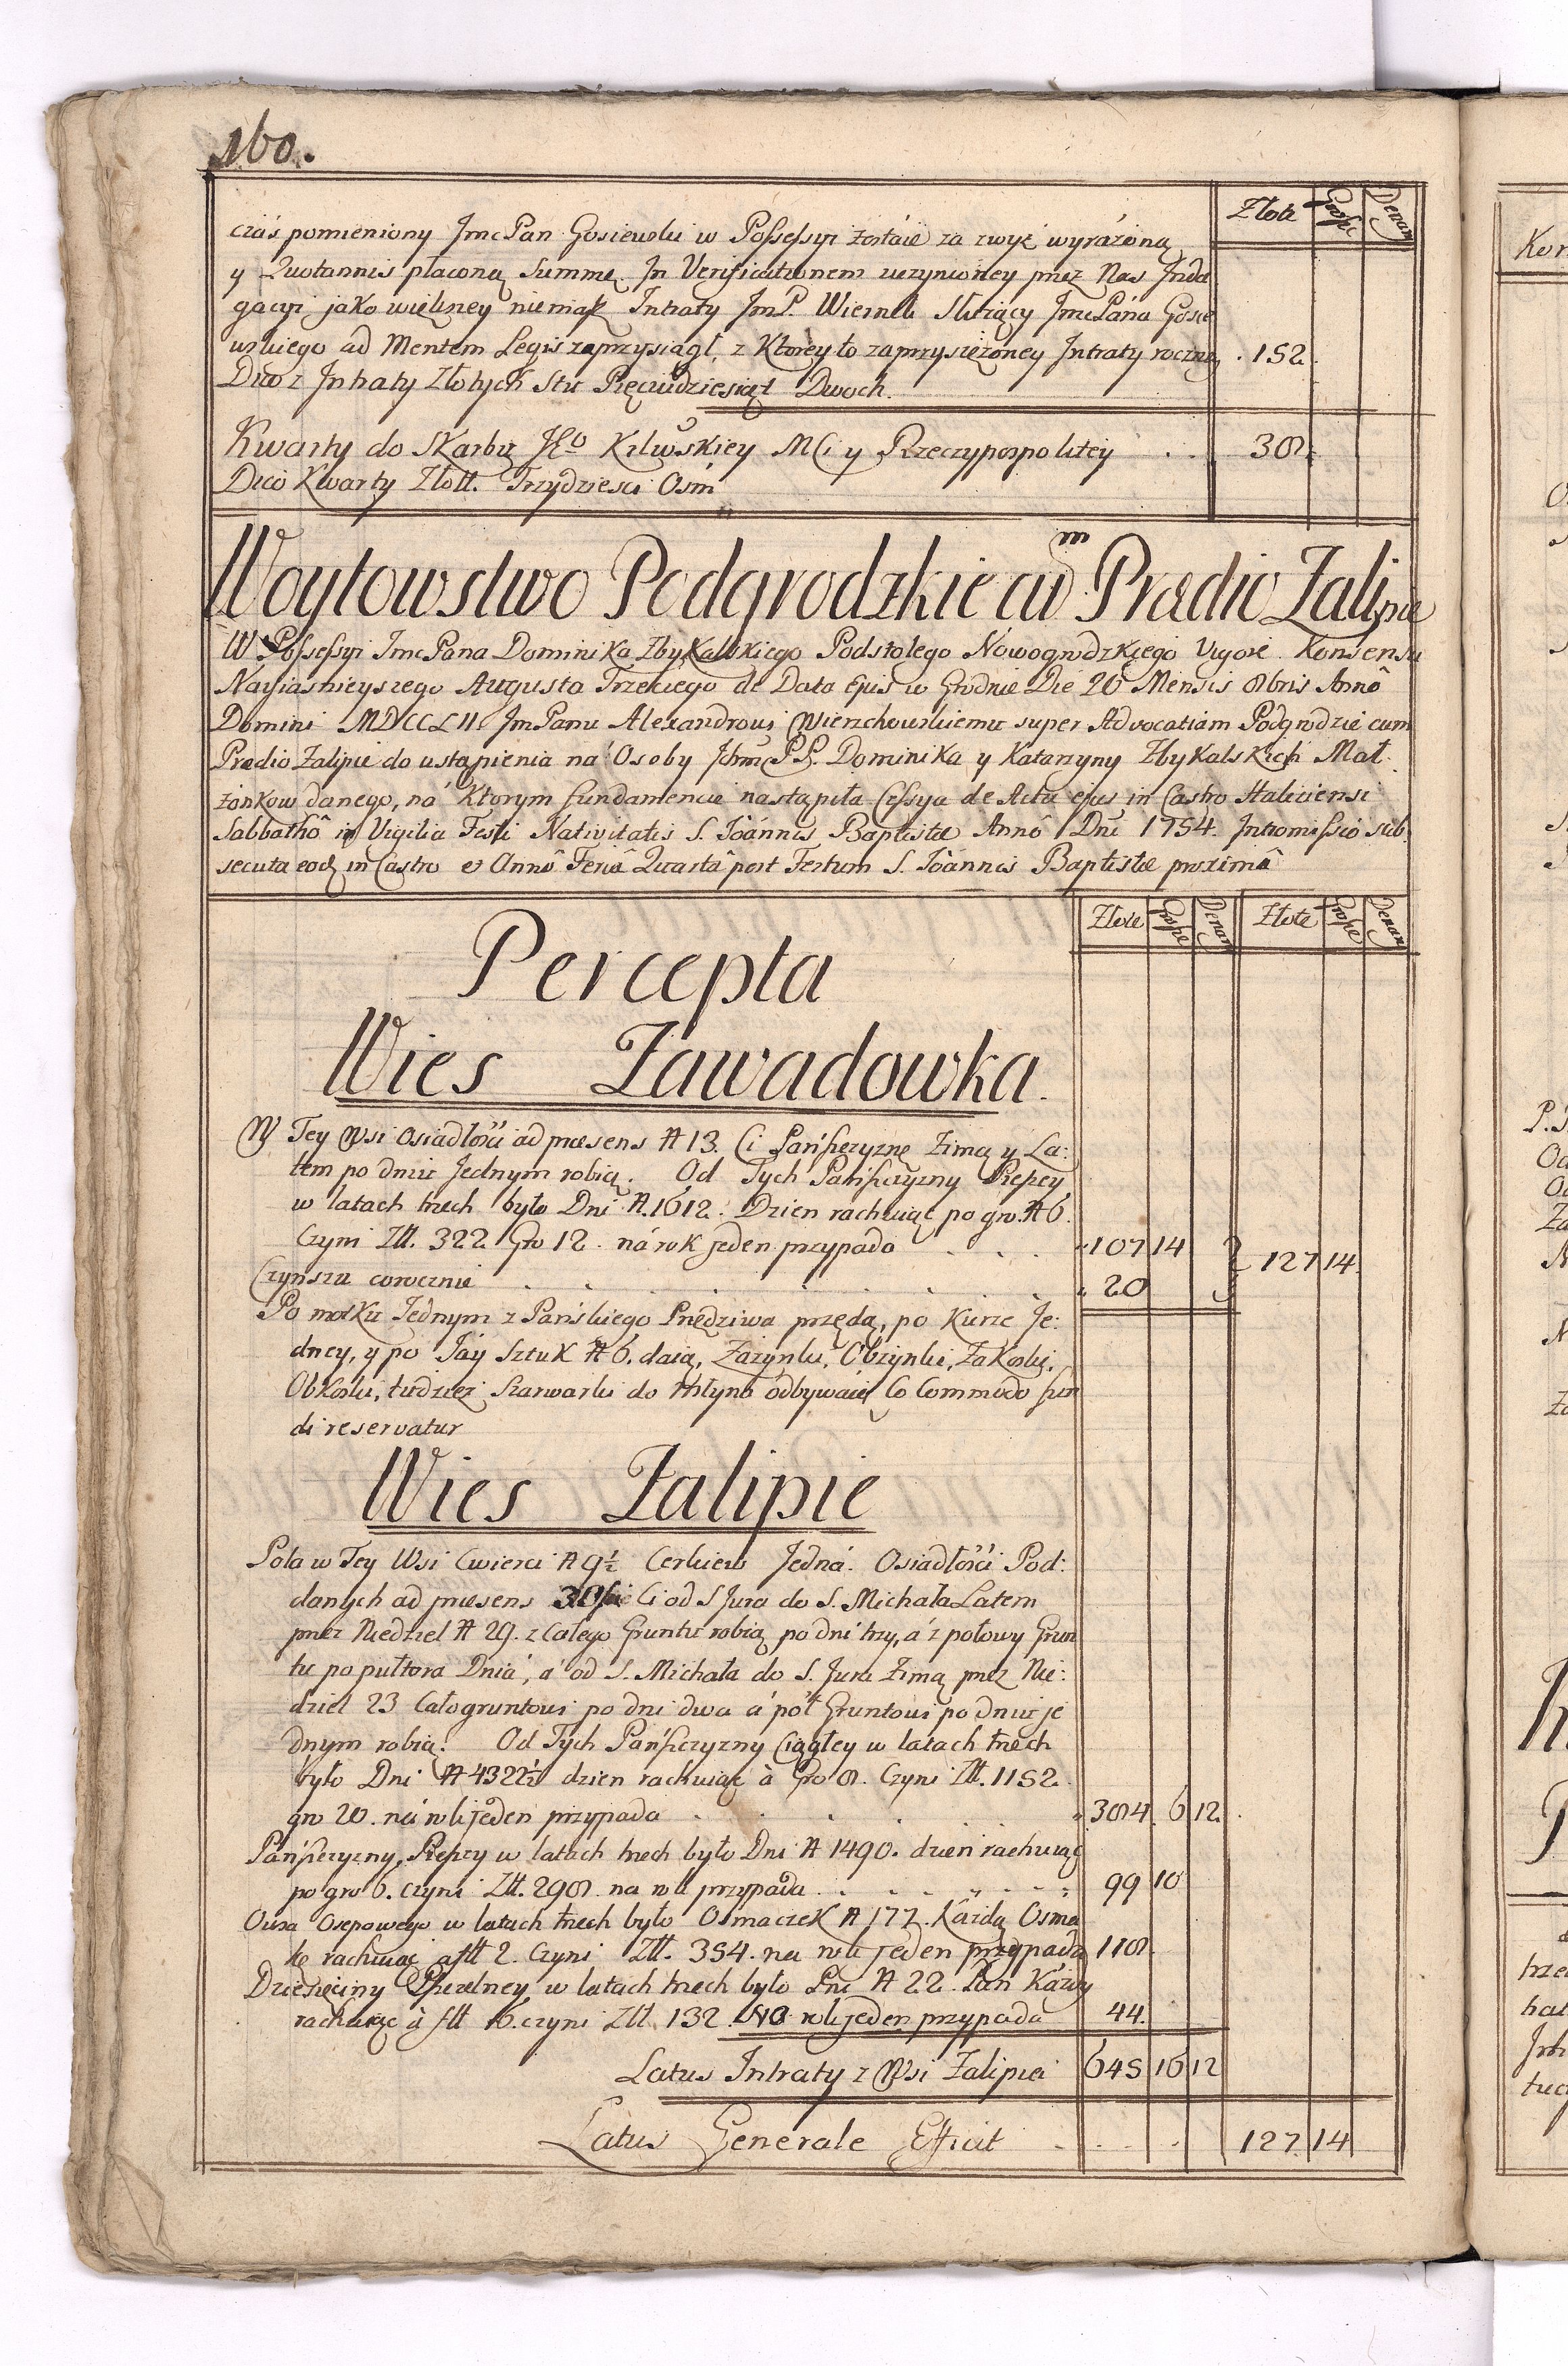 160.
Złote Grosze Denar
czás pomieniony Jmc Pan Gosiewski w Possessyi zostáie za zwyż wyrázoną
y Quotannis płaconą Summę. In Verificationem uczynioney przez Nas Inda
gacyi jako większey niemasz Intraty JmP. Wiernek Słuzący JmcPána Gosie
wskiego ad Mentem Legis zaprzysiągł, z Ktorey to zaprzysięzoney Intraty roczney . 152.
Dico z Intraty Złotych Sto Pięcudziesiąt Dwoch.
Kwarty do Skarbu JKo Krlwskiey MCi y Rzeczypospolitey . . 38.
Dico Kwarty Złott. Trzydziesci Osm
Woytowstwo Podgrodzkie cum Prædio Zalipie
W Possessyi JmcPana Dominika Zbykalskiego Podstolego Nowogrodzkiego Vigore Konsensu
Nayiasnieyszego Augusta Trzeciego de Data Ejus w Grodnie Die 20 Mensis 8bris Annô
Domini MDCCLII. JmPanu Alexandrowi Wierzchowskiemu super Advocatiam Podgrodzie cum
Prædio Zalipie do ustąpienia ná Osoby Jchm PP. Dominika y Katarzyny Zbykalskich Mał:
zonkow danego, ná Ktorym fundamencie nastąpiła Cessya de Actu ejus in Castro Haliciensi
Sabbathô in Vigilia Festi Nativitatis S. Joánnis Baptistæ Annô Dni 1754. Intromissio sub
secuta eod in Castro et Annô Feriâ Quartâ post Festum S. Joánnis Baptistæ proximâ
Złote Grosze Denar Złote Grosze Denar
Percepta
Wies Zawadowka.
W Tey Wsi Osiadłości ad præsens N 13. Ci Pańszczyznę Zimą y La:
tem po dniu Jednym robią. Od Tych Pańszczyzny Pieszey
w latach trzech było Dni N. 1612. Dzien rachuiąc po gro. N 6.
Czyni Złł. 322. Gro 12. ná rok jeden przypada . . . 107 14 127 14.
Czynszu corocznie . . . . 20
Po motku Jednym z Pańskiego Przędziwa przędą, po Kurze Je:
dney, y po Jay Sztuk N 6. daią, Zażynki, Obżynki, Zakoski,
Obkoski, tudziez Szarwarki do Młyna odbywaią Co Commodo fun
di reservatur
Wies Zalipie
Pola w Tey Wsi Cwierci N 9½ Cerkiew Jedná. Osiadłości Pod:
danych ad præsens Ci od S Jura do S. Michała Latem
przez Niedziel N 29. z Całego Gruntu robią po dni trzy, á z połowy Grun
tu po pułtora Dniá, á od S. Michała do S. Jura Zimą przez Nie:
dziel 23 Całogruntowi po dni dwa á pół Gruntowi po dniu je
dnym robią. Od Tych Pańszczyzny Ciągłey w latach trzech
było Dni N 4322½ dzien rachuiąc à Gro 8. Czyni Złł. 1152.
gro 20. ná rok jeden przypada . . . . 384. 6 12.
Pańszczyzny Pieszey w latach trzech było Dni N 1490. dzien rachuiąc
po gro 6. czyni Złł. 298. na rok przypada . . . . 99 10
Owsa Osepowego w latach trzech było Osmaczek N 177. Kázdą Osma
kę rachuiąc a fłł 2. Czyni Złł. 354. na rok jeden przypada 118.
Dziesięciny Pszczelney w latach trzech było Pni N 22. Pień Kázdy
rachuiąc à fłł 6. czyni Złł. 132. Na rok jeden przypada 44.
Latus Intraty z Wsi Zalipia 645 16 12
Latus Generale Efficit . . . 127 14